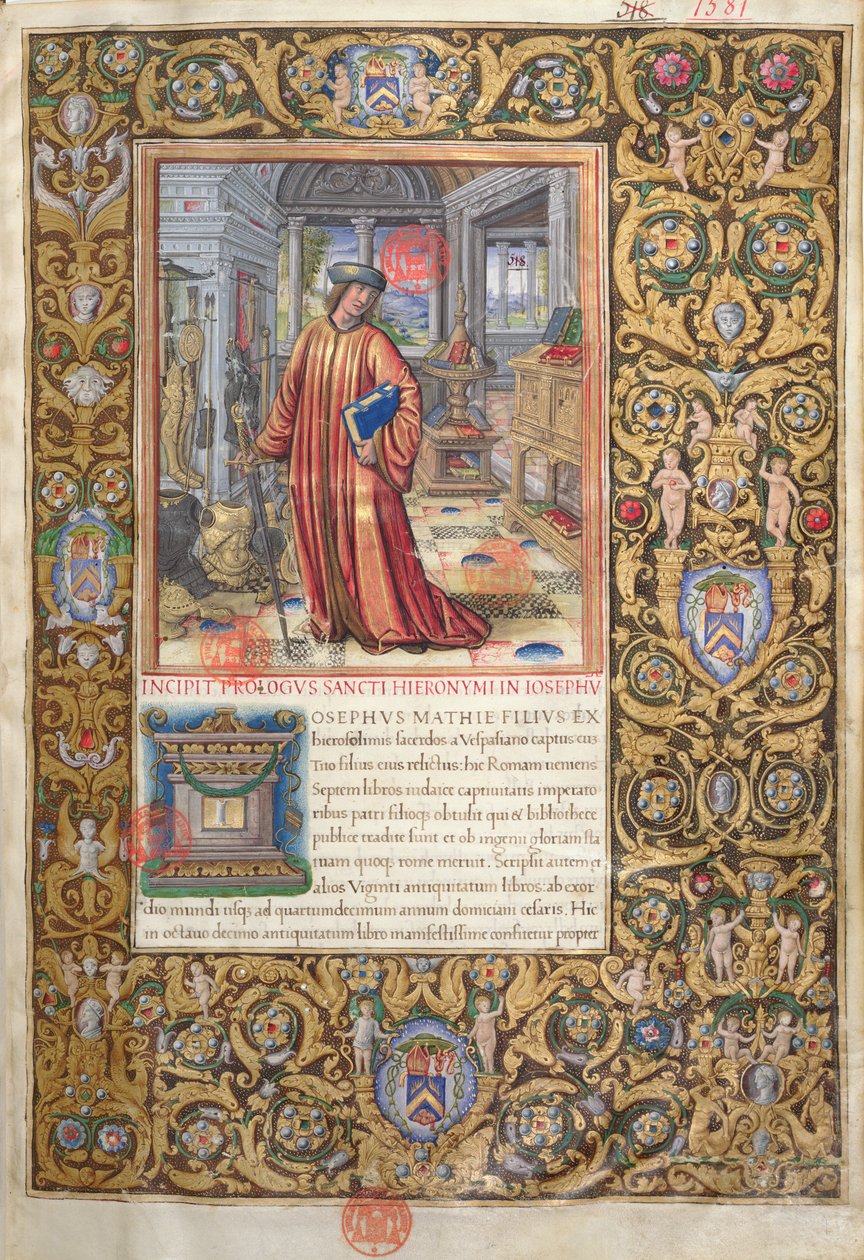 518
1581
518
INCIPIT PROLOGVS SANCTI HIERONYMI IN IOSEPHV
I
OSEPHVS MATHIE FILIVS EX
hierosolimis sacerdos a Vespasiano captus cuz
Tito filio eius relictus: hic Romam ueniens
Septem libros iudaice captiuitatis imperato
ribus patri filioqz obtulit qui & bibliothece
publice tradite sunt et ob ingenii gloriam sta
tuam quoqz rome meruit. Scripsit autem et
alios Viginti antiquitatum libros: ab exor
dio mundi usqz ad quartumdecimum annum domiciani cesaris. Hic
in octauo decimo antiquitatum libro manifestissime confitetur propter